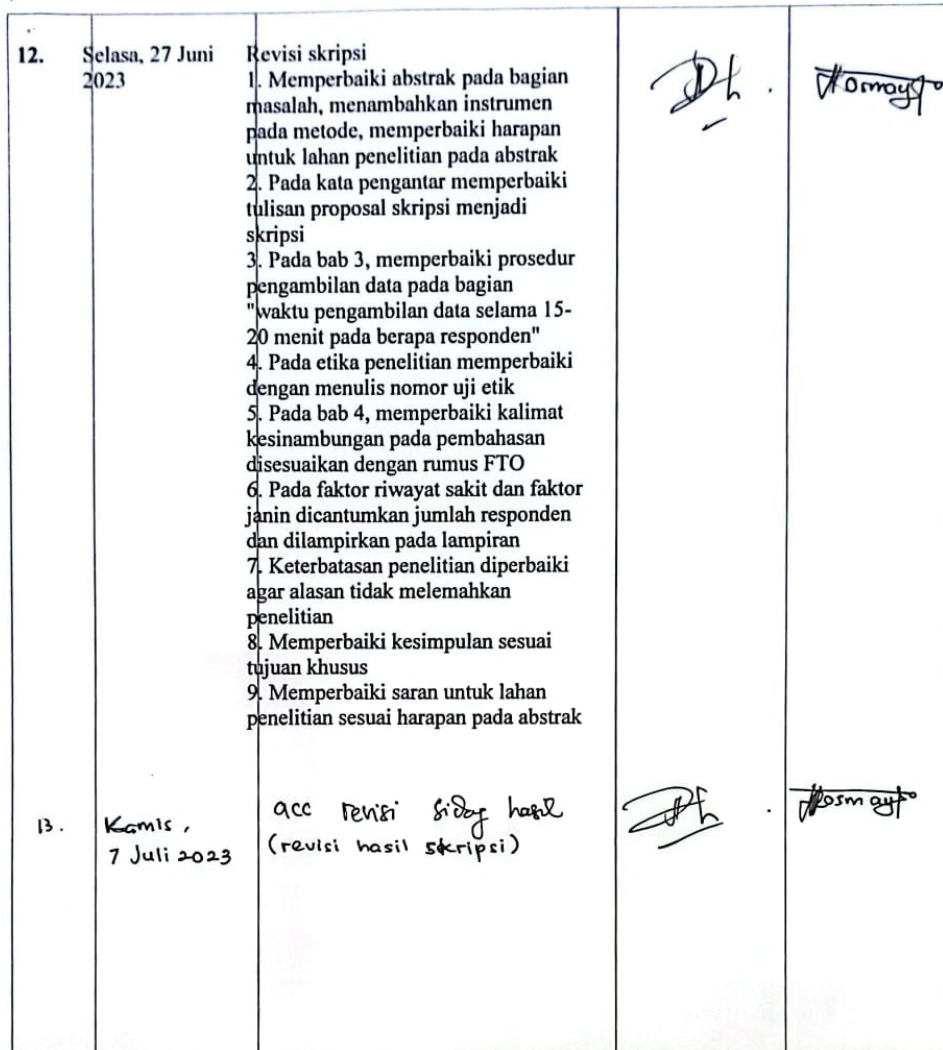 12. Selasa, 27 Juni Revisi skripsi
2023 1. Memperbaiki abstrak pada bagian
masalah, menambahkan instrumen
pada metode, memperbaiki harapan
untuk lahan penelitian pada abstrak
2. Pada kata pengantar memperbaiki
tulisan proposal skripsi menjadi
skripsi
3. Pada bab 3, memperbaiki prosedur
pengambilan data pada bagian
"waktu pengambilan data selama 15-
20 menit pada berapa responden"
4. Pada etika penelitian memperbaiki
dengan menulis nomor uji etik
5. Pada bab 4, memperbaiki kalimat
kesinambungan pada pembahasan
disesuaikan dengan rumus FTO
6. Pada faktor riwayat sakit dan faktor
janin dicantumkan jumlah responden
dan dilampirkan pada lampiran
7. Keterbatasan penelitian diperbaiki
agar alasan tidak melemahkan
penelitian
8. Memperbaiki kesimpulan sesuai
tujuan khusus
9. Memperbaiki saran untuk lahan
penelitian sesuai harapan pada abstrak
13. Kamis, acc revisi sidang hasil
7 Juli 2023 (revisi hasil skripsi)